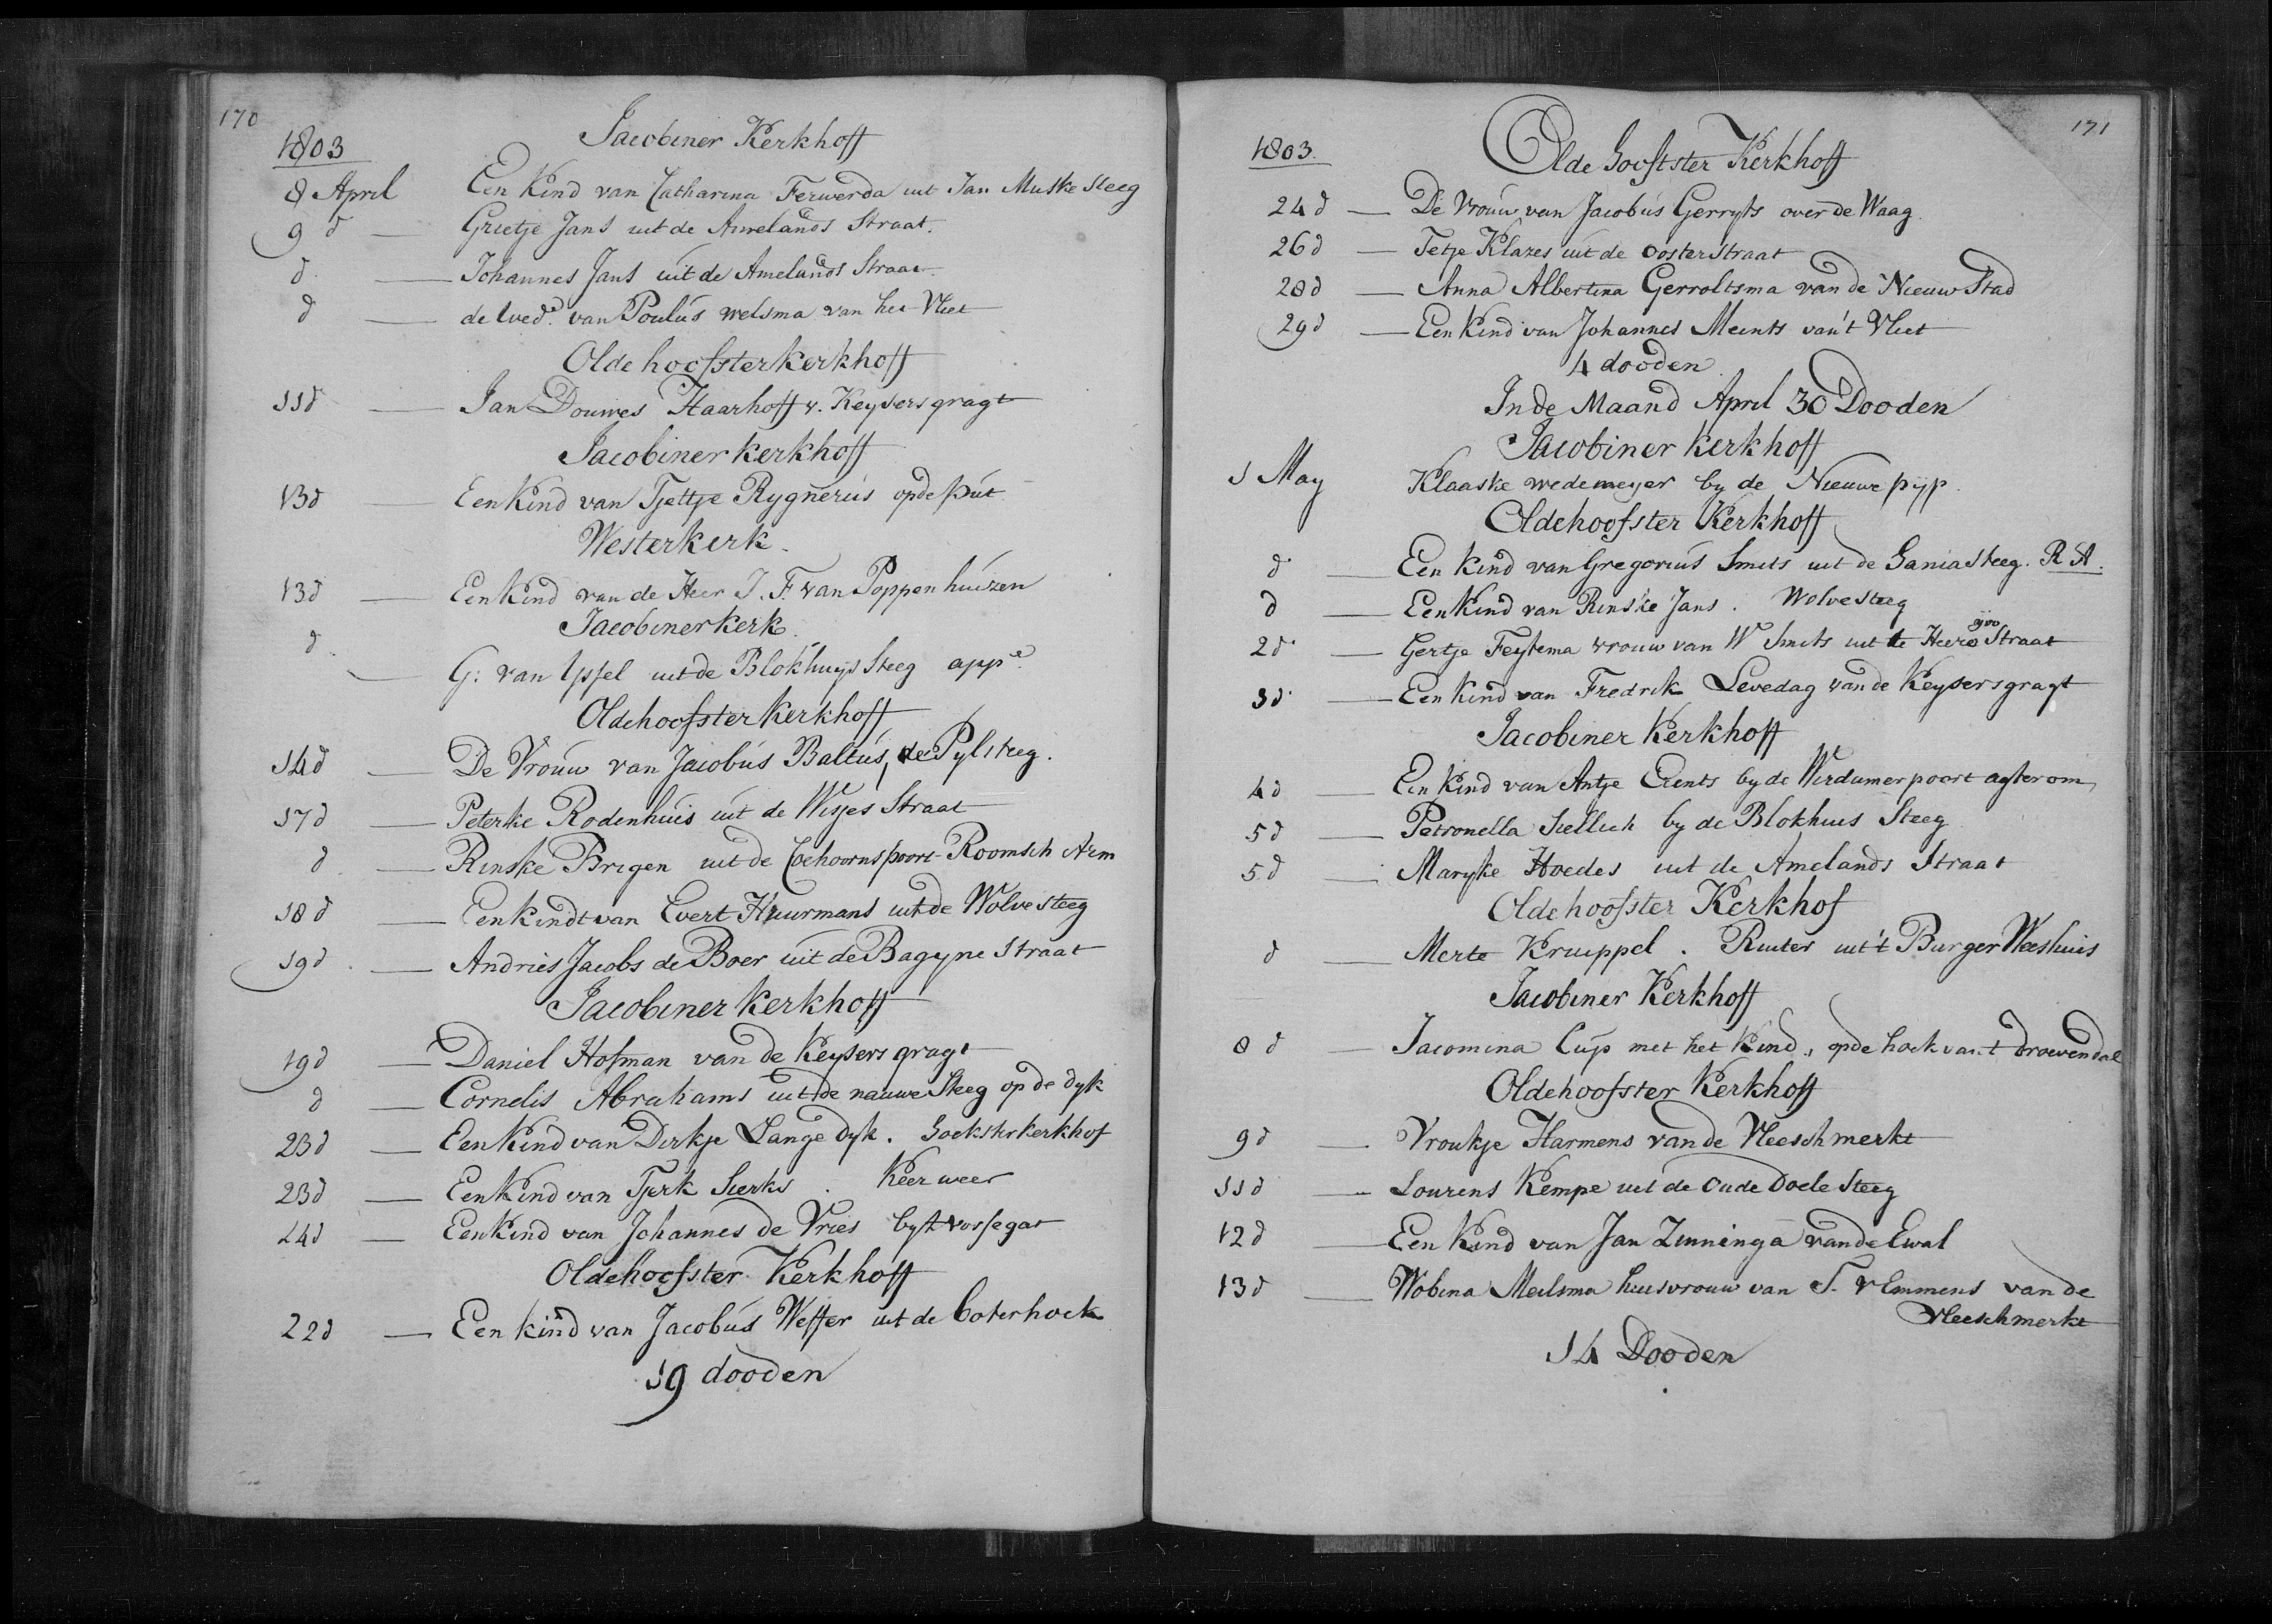 170
1803
Jacobiner Kerkhoff
8 April Een Kind van Catharina Ferwerda uit Jan Muske Steeg
9 d — Grietje Jans uit de Amelands Straat.
d — Johannes Jans uit de Amelands Straat
d — de Wed.e van Poulus Welsma van het Vliet
Olde hoofster kerkhoff
11 d — Jan Douwes Haarhoff v. Keysers gragt
Jacobiner kerkhoff
13 d — Een Kind van Tjettje Rygnerus op de put
Westerkerk.
13 d — Een Kind van de Heer J. F. van Poppenhuizen
Jacobinerkerk.
d — G: van Yssel uit de Blokhuys Steeg app.e
Oldehoofster kerkhoff
14 d — De Vrouw van Jacobus Baltus, de Pylsteeg.
17 d — Peterke Rodenhuis uit de Wisjes Straat
d — Rinske Brigen uit de Coehoornspoort Roomsch Arm
18 d — Een kindt van Evert Huurmans uit de Wolvesteeg
19 d — Andries Jacobs de Boer uit de Bagyne Straat
Jacobiner kerkhoff
19 d — Daniel Hofman van de Keysers gragt
d — Cornelis Abrahams uit de nauwe Steeg op de dyk
23 d — Een Kind van Dirkje Lange dyk. Hoekster kerkhof
23 d — Een Kind van Tjerk Sierks. Keer weer
24 d — Een Kind van Johannes de Vries by't vossegat
Oldehoofster Kerkhoff
22 d — Een kind van Jacobus Weffer uit de boterhoek
19 dooden
171
1803.
Olde Hooftster Kerkhoff
24 d — De Vrouw van Jacobus Gerryts over de Waag.
26 d — Tetje Klazes uit de Oosterstraat
28 d — Anna Albertina Gerroltsma van de Nieuw Stad
29 d — Een Kind van Johannes Meints van 't Vliet
4 dooden
In de Maand April 30 Dooden
Jacobiner Kerkhoff
1 May Klaaske wedemeyer by de Nieuwe pyp.
Oldehoofster Kerkhoff
d — Een kind van Gregorius Smits uit de Gania Steeg. R A.
d — Een Kind van Rinske Jans. Wolvesteeg
2 d — Gertje Feytema vrouw van W Smits uit te Heere Straat
3 d — Een Kind van Fredrik Levedag van de Keysersgragt
Jacobiner Kerkhoff
4 d — Een Kind van Antje Eients by de Wirdumerpoort agter om
5 d — Petronella Siellich by de Blokhuis Steeg
5 d — Maryke Hoedes uit de Amelands Straat
Oldehoofster Kerkhof
d — Merte Kruippel. Ruiter uit 't Burger Weeshuis
Jacobiner Kerkhoff
8 d — Jacomina Cup met het Kind, op de hoek van t droevendal
Oldehoofster Kerkhoff
9 d — Vroukje Harmens van de Vleeschmerkt
11 d — Lourens Kempe uit de Oude Doele Steeg
12 d — Een Kind van Jan Zinninga van de Ewal
13 d — Wobina Meilsma huisvrouw van S. v Emmens van de
Vleeschmerkt
14 Dooden